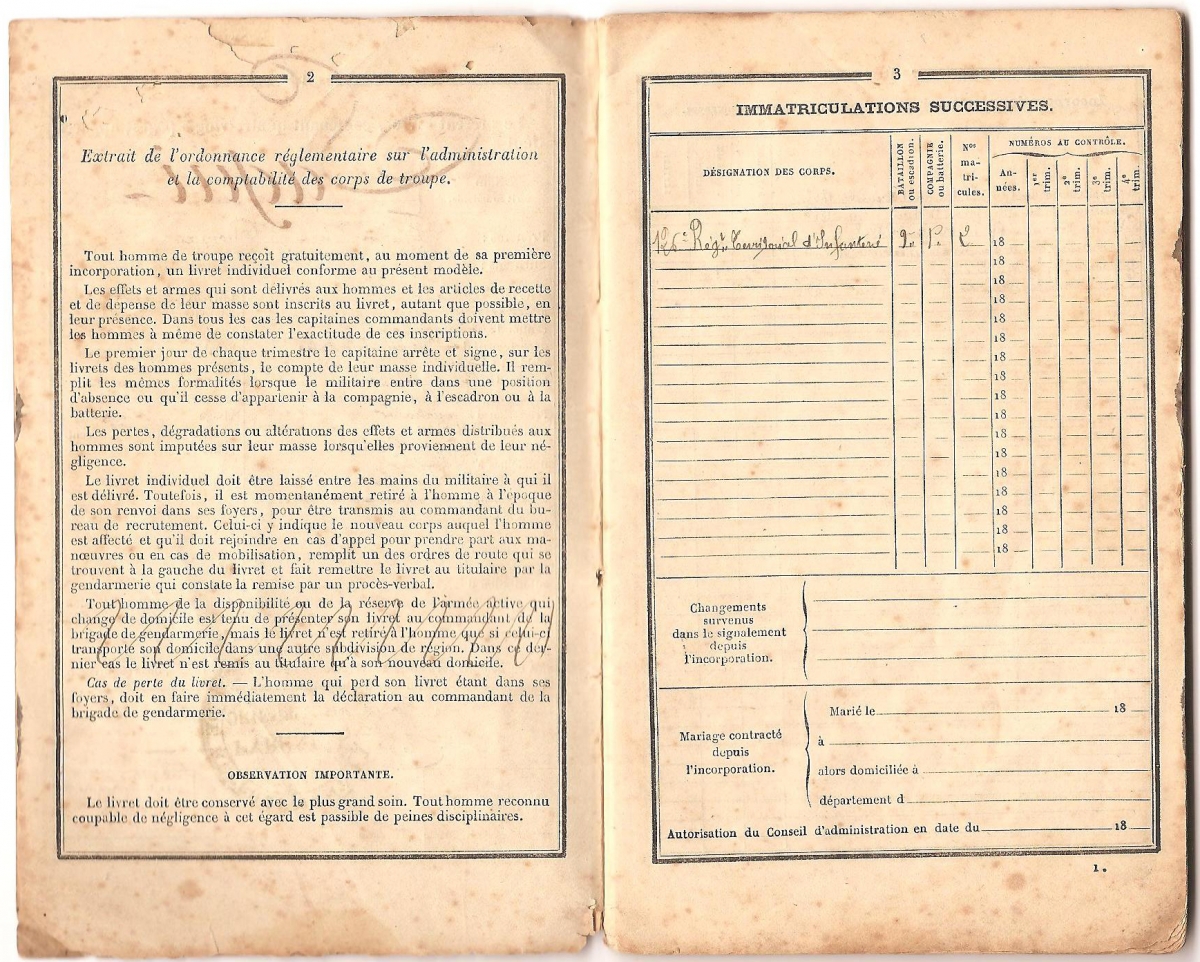 2
Extrait de l'ordonnance réglementaire sur l'administration
et la comptabilité des corps de troupe.
Tout homme de troupe reçoit gratuitement, au moment de sa première
incorporation, un livret individuel conforme au présent modèle.
Les effets et armes qui sont délivrés aux hommes et les articles de recette
et de dépense de leur masse sont inscrits au livret, autant que possible, en
leur présence. Dans tous les cas les capitaines commandants doivent mettre
les hommes à même de constater l'exactitude de ces inscriptions.
Le premier jour de chaque trimestre le capitaine arrête et signe, sur les
livrets des hommes présents, le compte de leur masse individuelle. Il rem-
plit les mêmes formalités lorsque le militaire entre dans une position
d'absence ou qu'il cesse d'appartenir à la compagnie, à l'escadron ou à la
batterie.
Les pertes, dégradations ou altérations des effets et armes distribués aux
hommes sont imputées sur leur masse lorsqu'elles proviennent de leur né-
gligence.
Le livret individuel doit être laissé entre les mains du militaire à qui il
est délivré. Toutefois, il est momentanément retiré à l'homme à l'époque
de son renvoi dans ses foyers, pour être transmis au commandant du bu-
reau de recrutement. Celui-ci y indique le nouveau corps auquel l'homme
est affecté et qu'il doit rejoindre en cas d'appel pour prendre part aux ma-
nœuvres ou en cas de mobilisation, remplit un des ordres de route qui se
trouvent à la gauche du livret et fait remettre le livret au titulaire par la
gendarmerie qui constate la remise par un procès-verbal.
Tout homme de la disponibilité ou de la réserve de l'armée active qui
change de domicile est tenu de présenter son livret au commandant de la
brigade de gendarmerie, mais le livret n'est retiré à l'homme que si celui-ci
transporte son domicile dans une autre subdivision de région. Dans ce der-
nier cas le livret n'est remis au titulaire qu'à son nouveau domicile.
Cas de perte du livret. — L'homme qui perd son livret étant dans ses
foyers, doit en faire immédiatement la déclaration au commandant de la
brigade de gendarmerie.
OBSERVATION IMPORTANTE.
Le livret doit être conservé avec le plus grand soin. Tout homme reconnu
coupable de négligence à cet égard est passible de peines disciplinaires.
3
IMMATRICULATIONS SUCCESSIVES.
DÉSIGNATION DES CORPS. BATAILLON ou escadron. COMPAGNIE ou batterie. Nos ma-tri-cules. NUMÉROS AU CONTRÔLE. An-nées. 1er trim. 2e trim. 3e trim. 4e trim.
126e Régt Territorial d'Infanterie 2e 1re 2 18
18
18
18
18
18
18
18
18
18
18
18
18
18
18
18
18
Changements
survenus
dans le signalement
depuis
l'incorporation.
Mariage contracté
depuis
l'incorporation.
Marié le 18
à
alors domiciliée à
département d
Autorisation du Conseil d'administration en date du 18
1.